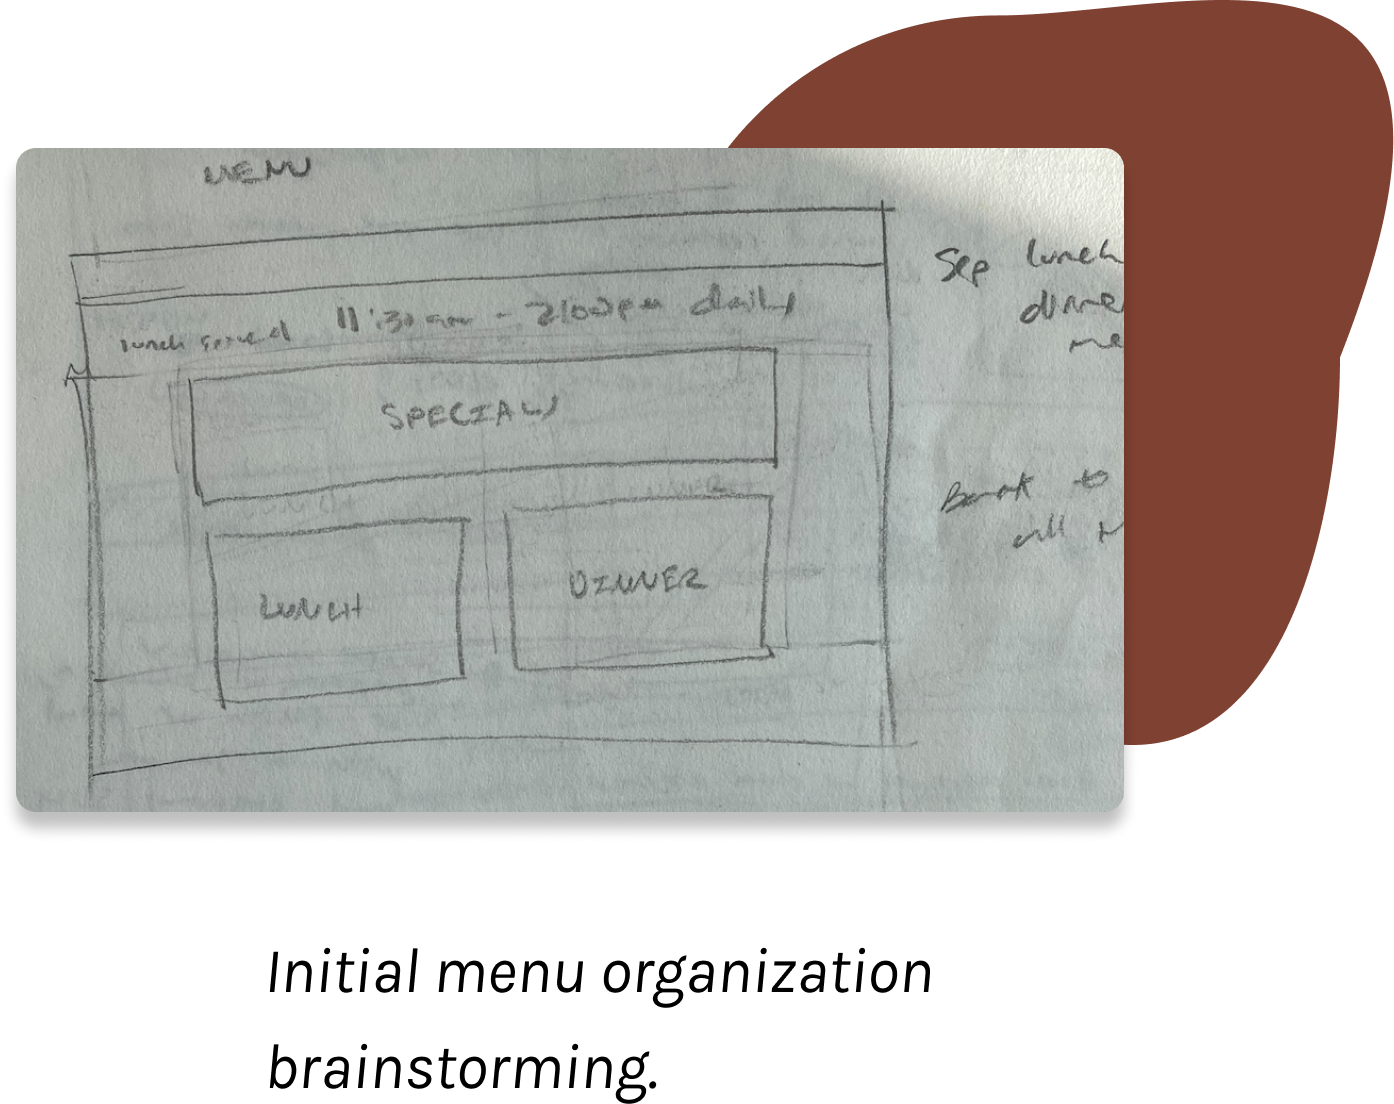 MENU
lunch served 11:30am - 2:00pm daily
SPECIALS
LUNCH
DINNER
Sep lunch
dinner
me
to
all
Initial menu organization
brainstorming.